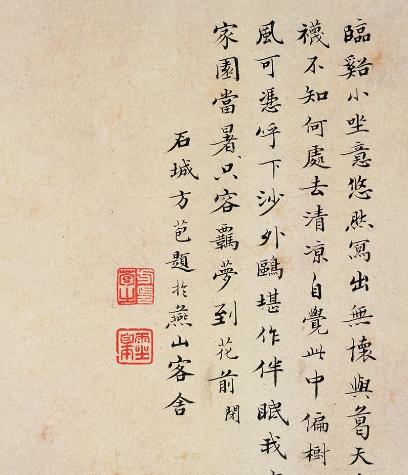 臨谿小坐意悠然寫出無懷與葛天
襪不知何處去清凉自覺此中偏樹
風可憑呼下沙外鷗堪作伴眠我
家園當暑只容羈夢到花前
石城方芑題於燕山客舍